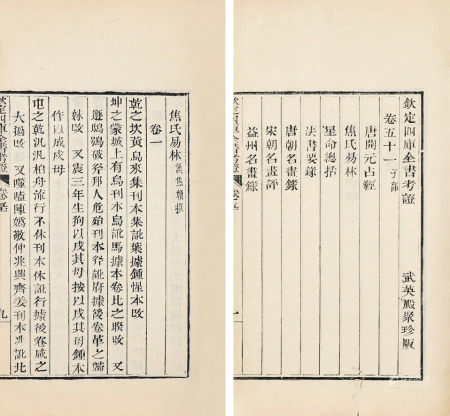 欽定四庫全書考證 武英殿聚珍版
卷五十一 子部
唐開元占經
焦氏易林
星命總括
法書要錄
唐朝名畫錄
宋朝名畫評
益州名畫錄
欽定四庫全書考證 九
焦氏易林 漢焦贛撰
卷一
乾之坎黃鳥來集刊本集訛葉據鍾惺本改
坤之蒙城上有烏刊本烏訛馬據本卷比之睽改 又
遯鴟鴞破斧邦人危殆刊本斧訛府據後卷革之
改 又震三年生狗以戌其母按以戌其母鍾本
作 戌戌母
屯之乾汎汎柏舟流行不休刊本休訛行據後卷咸之
大過改 又噬嗑陳嬀敬仲兆興齊姜刊本兆訛北
欽定四庫全書考證 九